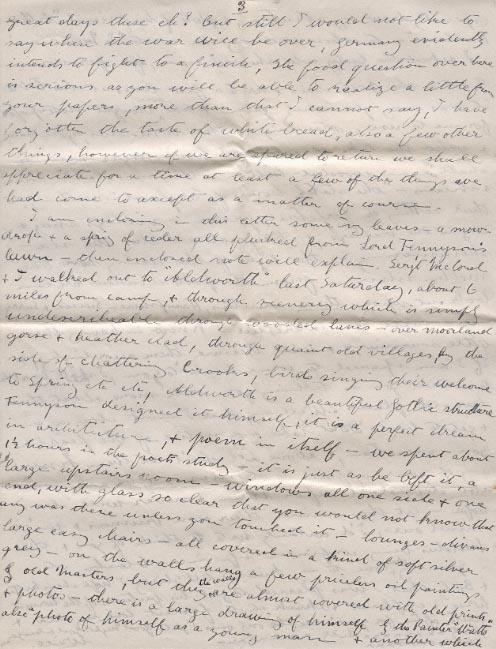 3
great days these eh! but still I would not like to
say where the war will be over, Germany evidently
intends to fight to a finite, the food question over here
is serious as you will be able to realize a little from
your papers, more than that I cannot say, I have
forgotten the taste of white bread, also a few other
things, however if we are spared to return we shall
appreciate for a time at least a few of the things we
had come to accept as a matter of course.
I am enclosing in this letter some ivy leaves - a snow-
drop + a sprig of ceder all plucked from Lord Tennyson's
lawn - then enclosed note will explain. Serg't
+ I walked out to "Aldworth" last Saturday, about 6
miles from camp, + through scenery which is simply
undescribeable through wooded lanes - over moorland
gorse + heather clad, through quaint old villages, by the
side of chattering brooks, birds singing their welcome
to spring etc etc, Aldworth is a beautiful Gothic structure
Tennyson designed it himself, it is a perfect dream
in architecture, + poem in itself - we spent about
1½ hours in the poets study - it is just as he left it, a
large upstairs room - windows all one side + one
end, with glass so clear that you would not know that
any was there unless you touched it - lounges - divans
large easy chairs - all covered in a kind of soft silver
grey - on the walls hang a few priceless oil paintings
of old Masters, but the walls are almost covered with old prints
+ photos - there is a large drawing of himself by the Painter "Watts"
also photo of himself as a young man + another which